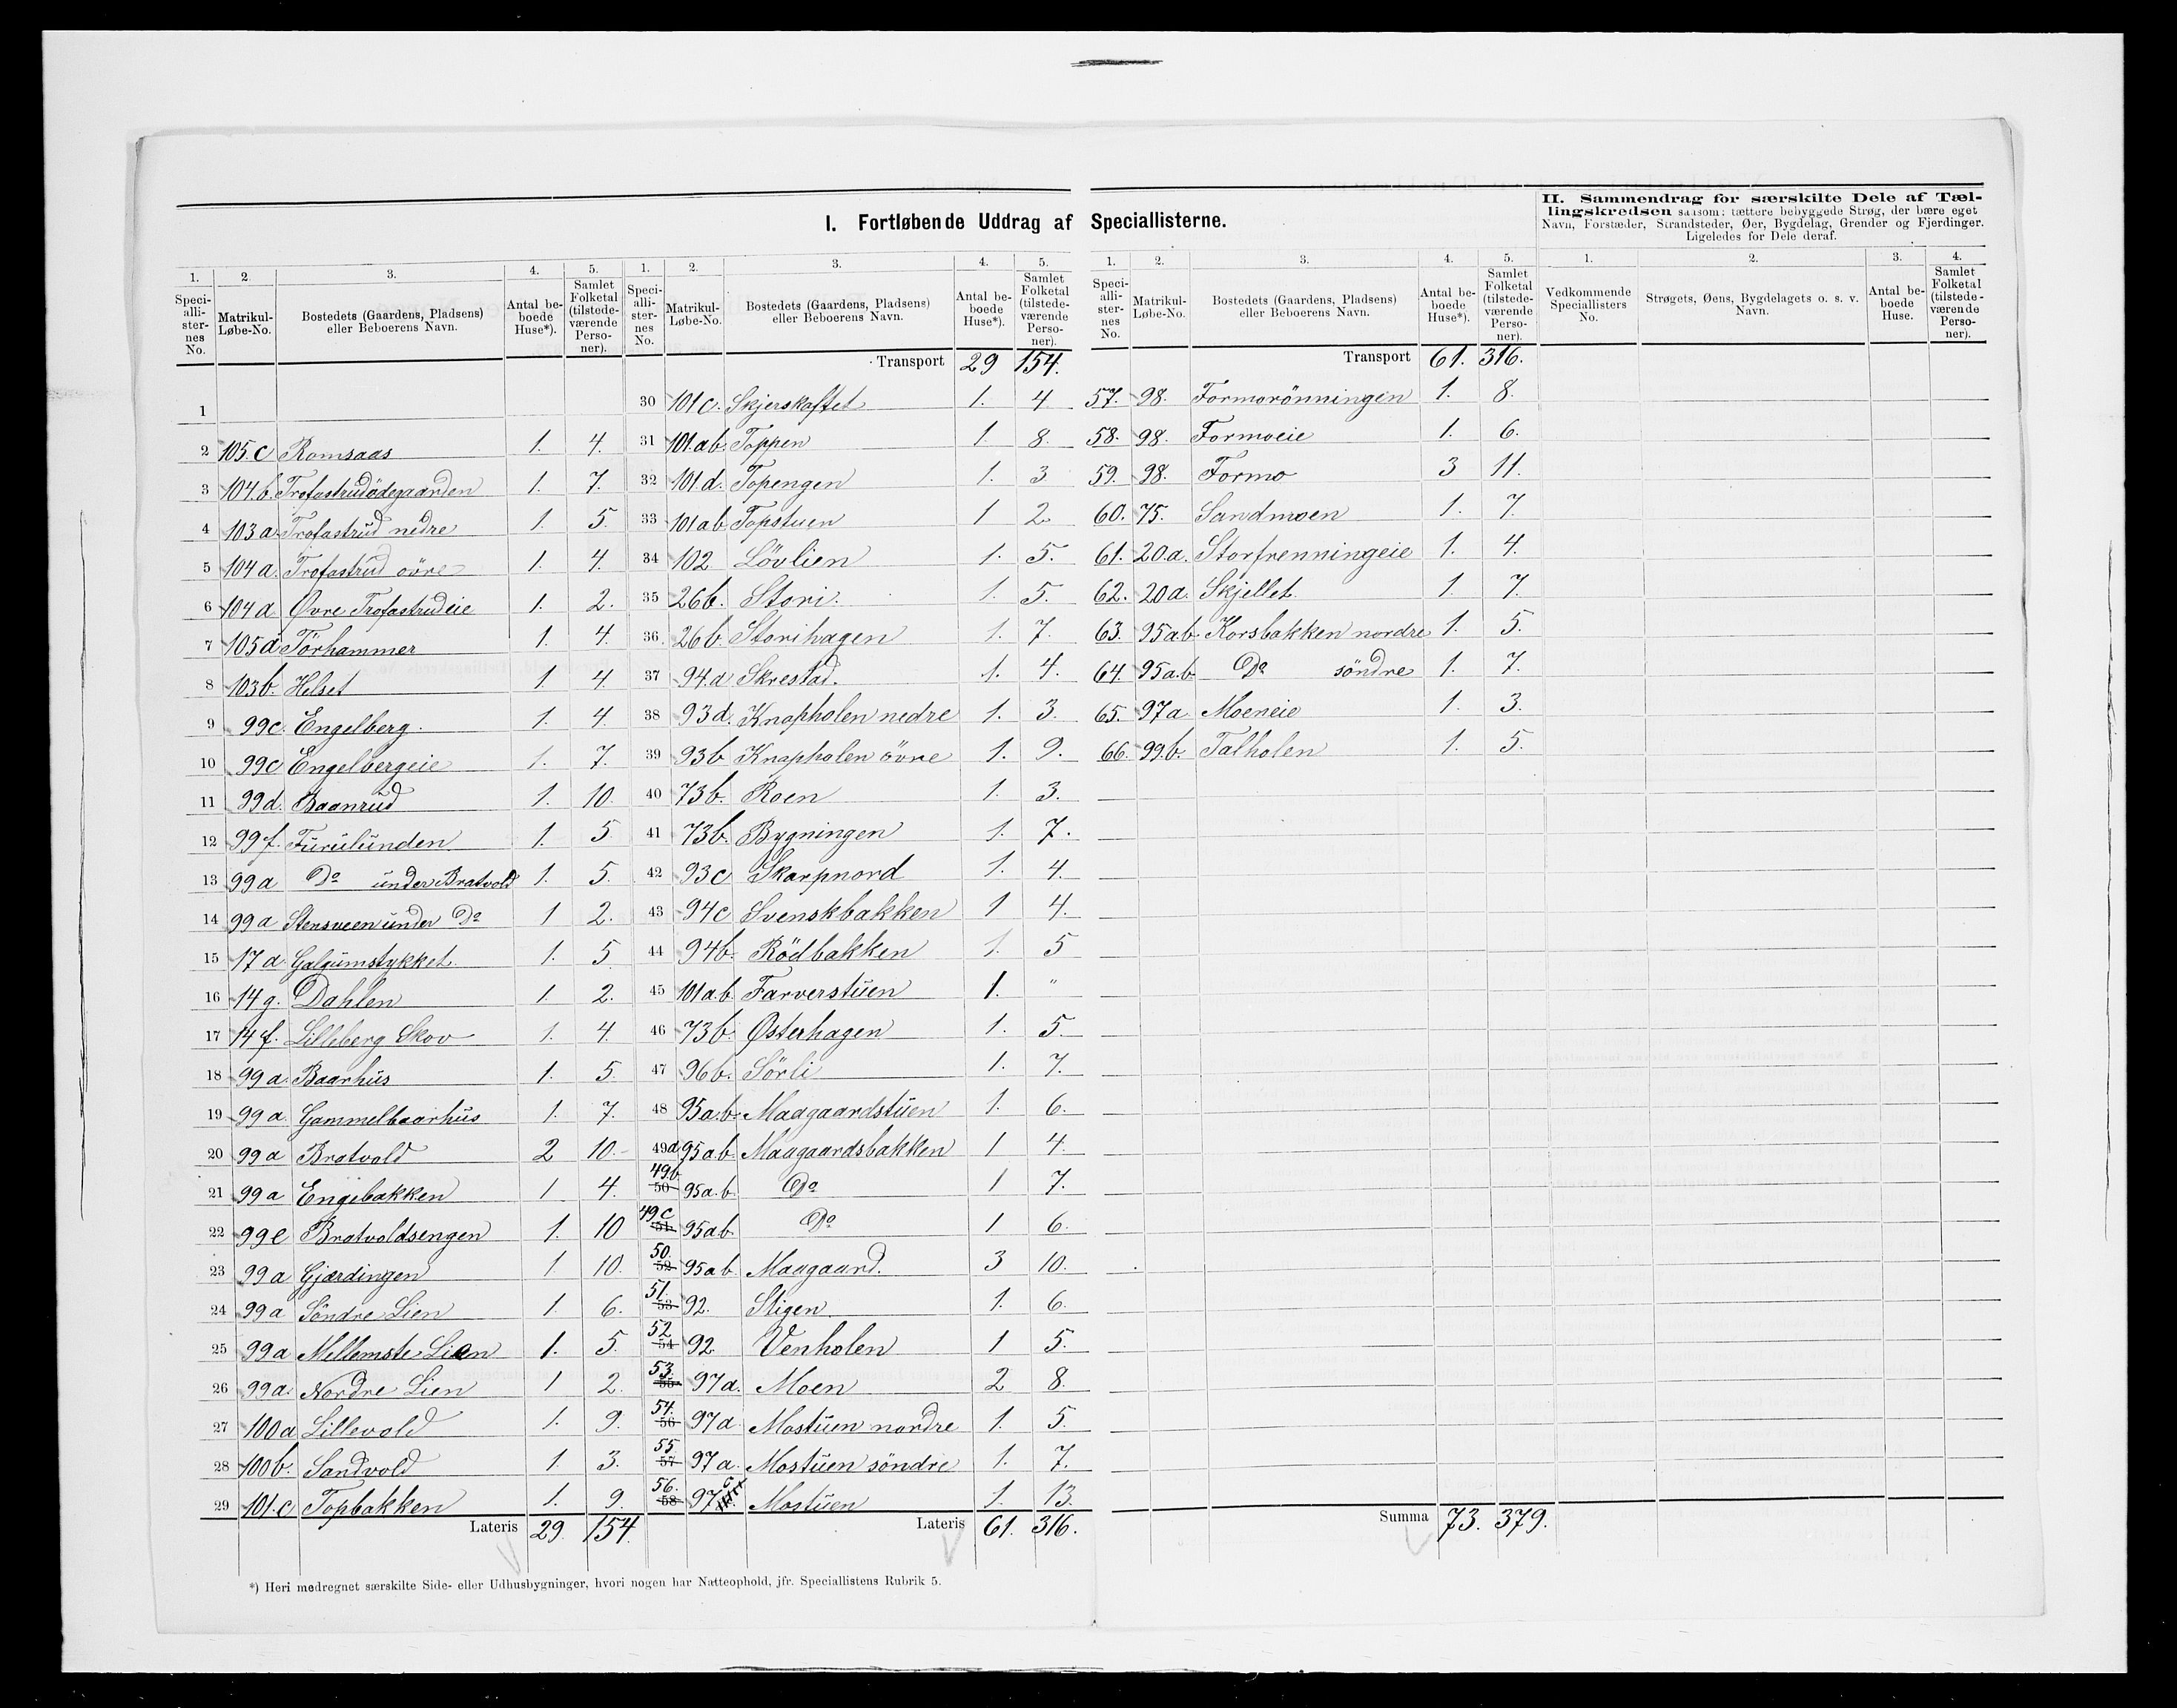 I. Fortløbende Uddrag af Speciallisterne.
II. Sammendrag for særskilte Dele af Tællingskredsen saasom: tættere bebyggede Strøg, der bære eget
Navn, Forstæder, Strandsteder, Øer, Bygdelag, Grender og Fjerdinger.
Ligeledes for Dele deraf.
1. 2. 3. 4. 5.
Speciallisternes No. Matrikul-Løbe-No. Bostedets (Gaardens, Pladsens) eller Beboerens Navn. Antal beboede Huse*). Samlet Folketal (tilstedeværende Personer).
1
2 105.c Romsaas 1. 4.
3 104.b. Trofastrudödegaarden 1. 7.
4 103a. Trofastrud nedre 1. 5.
5 104a. Trofastrud övre 1. 4.
6 104a Øvre Trofastrudeie 1. 2.
7 105d Törhammer 1. 4.
8 103b. Helset 1 4.
9 99c. Engelberg. 1. 4.
10 99c Engelbergeie 1. 7.
11 99d. Baanrud 1. 10.
12 99f. Furulunden 1. 5
13 99a Do under Bratvold 1. 5.
14 99a Stensveen under Do 1 2.
15 17a. Galgumstykket. 1. 5
16 14g. Dahlen 1. 2.
17 14f. Lilleberg Skov 1. 4.
18 99a. Baarhus 1. 5.
19 99a. Gammelbaarhus 1. 7.
20 99a Bratvold 2 10.
21 99a Engebakken 1 4.
22 99e Bratvoldsengen 1. 10
23 99a Gjærdingen 1. 10.
24 99a Söndre Lien 1. 6.
25 99a Mellemste Lien 1. 5.
26 99a. Nordre Lien 1 2.
27 100a Lillevold 1. 9.
28 100b. Sandvold 1. 3.
29 101.c Topbakken 1. 9.
Lateris 29 154.
1. 2. 3. 4. 5.
Speciallisternes No. Matrikul-Løbe-No. Bostedets (Gaardens, Pladsens) eller Beboerens Navn. Antal beboede Huse*). Samlet Folketal (tilstedeværende Personer).
Transport 29 154.
30 101c. Skjerskaftet 1. 4
31 101.ab. Toppen 1. 8.
32 101.d. Topengen 1. 3
33 101ab Topstuen 1 2.
34 102 Lövlien 1. 5.
35 26b. Stori. 1. 5.
36 26b. Storihagen 1. 7.
37 94.a Skrestad. 1. 4.
38 93d. Knapholen nedre 1. 3.
39 93b Knapholen övre 1. 9.
40 73b. Roen 1. 3.
41 73b. Bygningen 1. 7.
42 93c Skarpnord 1. 4.
43 94c Svenskbakken 1 4.
44 94b. Rödbakken 1. 5
45 101a.b. Farverstuen 1. "
46 73b. Østerhagen 1. 5.
47 96b. Sörli 1. 7.
48 95a.b. Maagaardstuen 1. 6.
49a 95a.b. Maagaardsbakken 1 4.
49b 50 95a.b. Do 1 7.
49c 51 95ab. Do 1 6.
50. 52 95ab. Maagaard. 3 10.
51. 53 92. Stigen 1. 6.
52 54 92. Venholen 1 5.
53. 55 97a. Moen 2 8.
54. 56 97a Mostuen nordre 1. 5.
55 57 97a. Mostuen söndre 1. 7.
56. 58 97c Mostuen 1. 13.
Lateris 61. 316.
1. 2. 3. 4. 5.
Speciallisternes No. Matrikul-Løbe-No. Bostedets (Gaardens, Pladsens) eller Beboerens Navn. Antal beboede Huse*). Samlet Folketal (tilstedeværende Personer).
Transport 61. 316.
57. 98. Formorönningen 1. 8.
58. 98. Formoeie 1. 6.
59. 98. Formo 3 11.
60. 75. Sandmoen 1. 7.
61. 20.a. Storfrenningeie 1. 4.
62. 20a. Skjellet. 1. 7.
63. 95a.b. Korsbakken nordre 1. 5.
64. 95a.b. Do söndre 1. 7.
65. 97a Moeneie 1. 3.
66. 99b. Talholen 1. 5.
Summa 73. 379.
1. 2. 3. 4.
Vedkommende Speciallisters No. Strøgets, Øens, Bygdelagets o. s. v. Navn. Antal beboede Huse. Samlet Folketal (tilstedeværende Personer).
*) Heri medregnet særskilte Side- eller Udhusbygninger, hvori nogen har Natteophold, jfr. Speciallistens Rubrik 5.